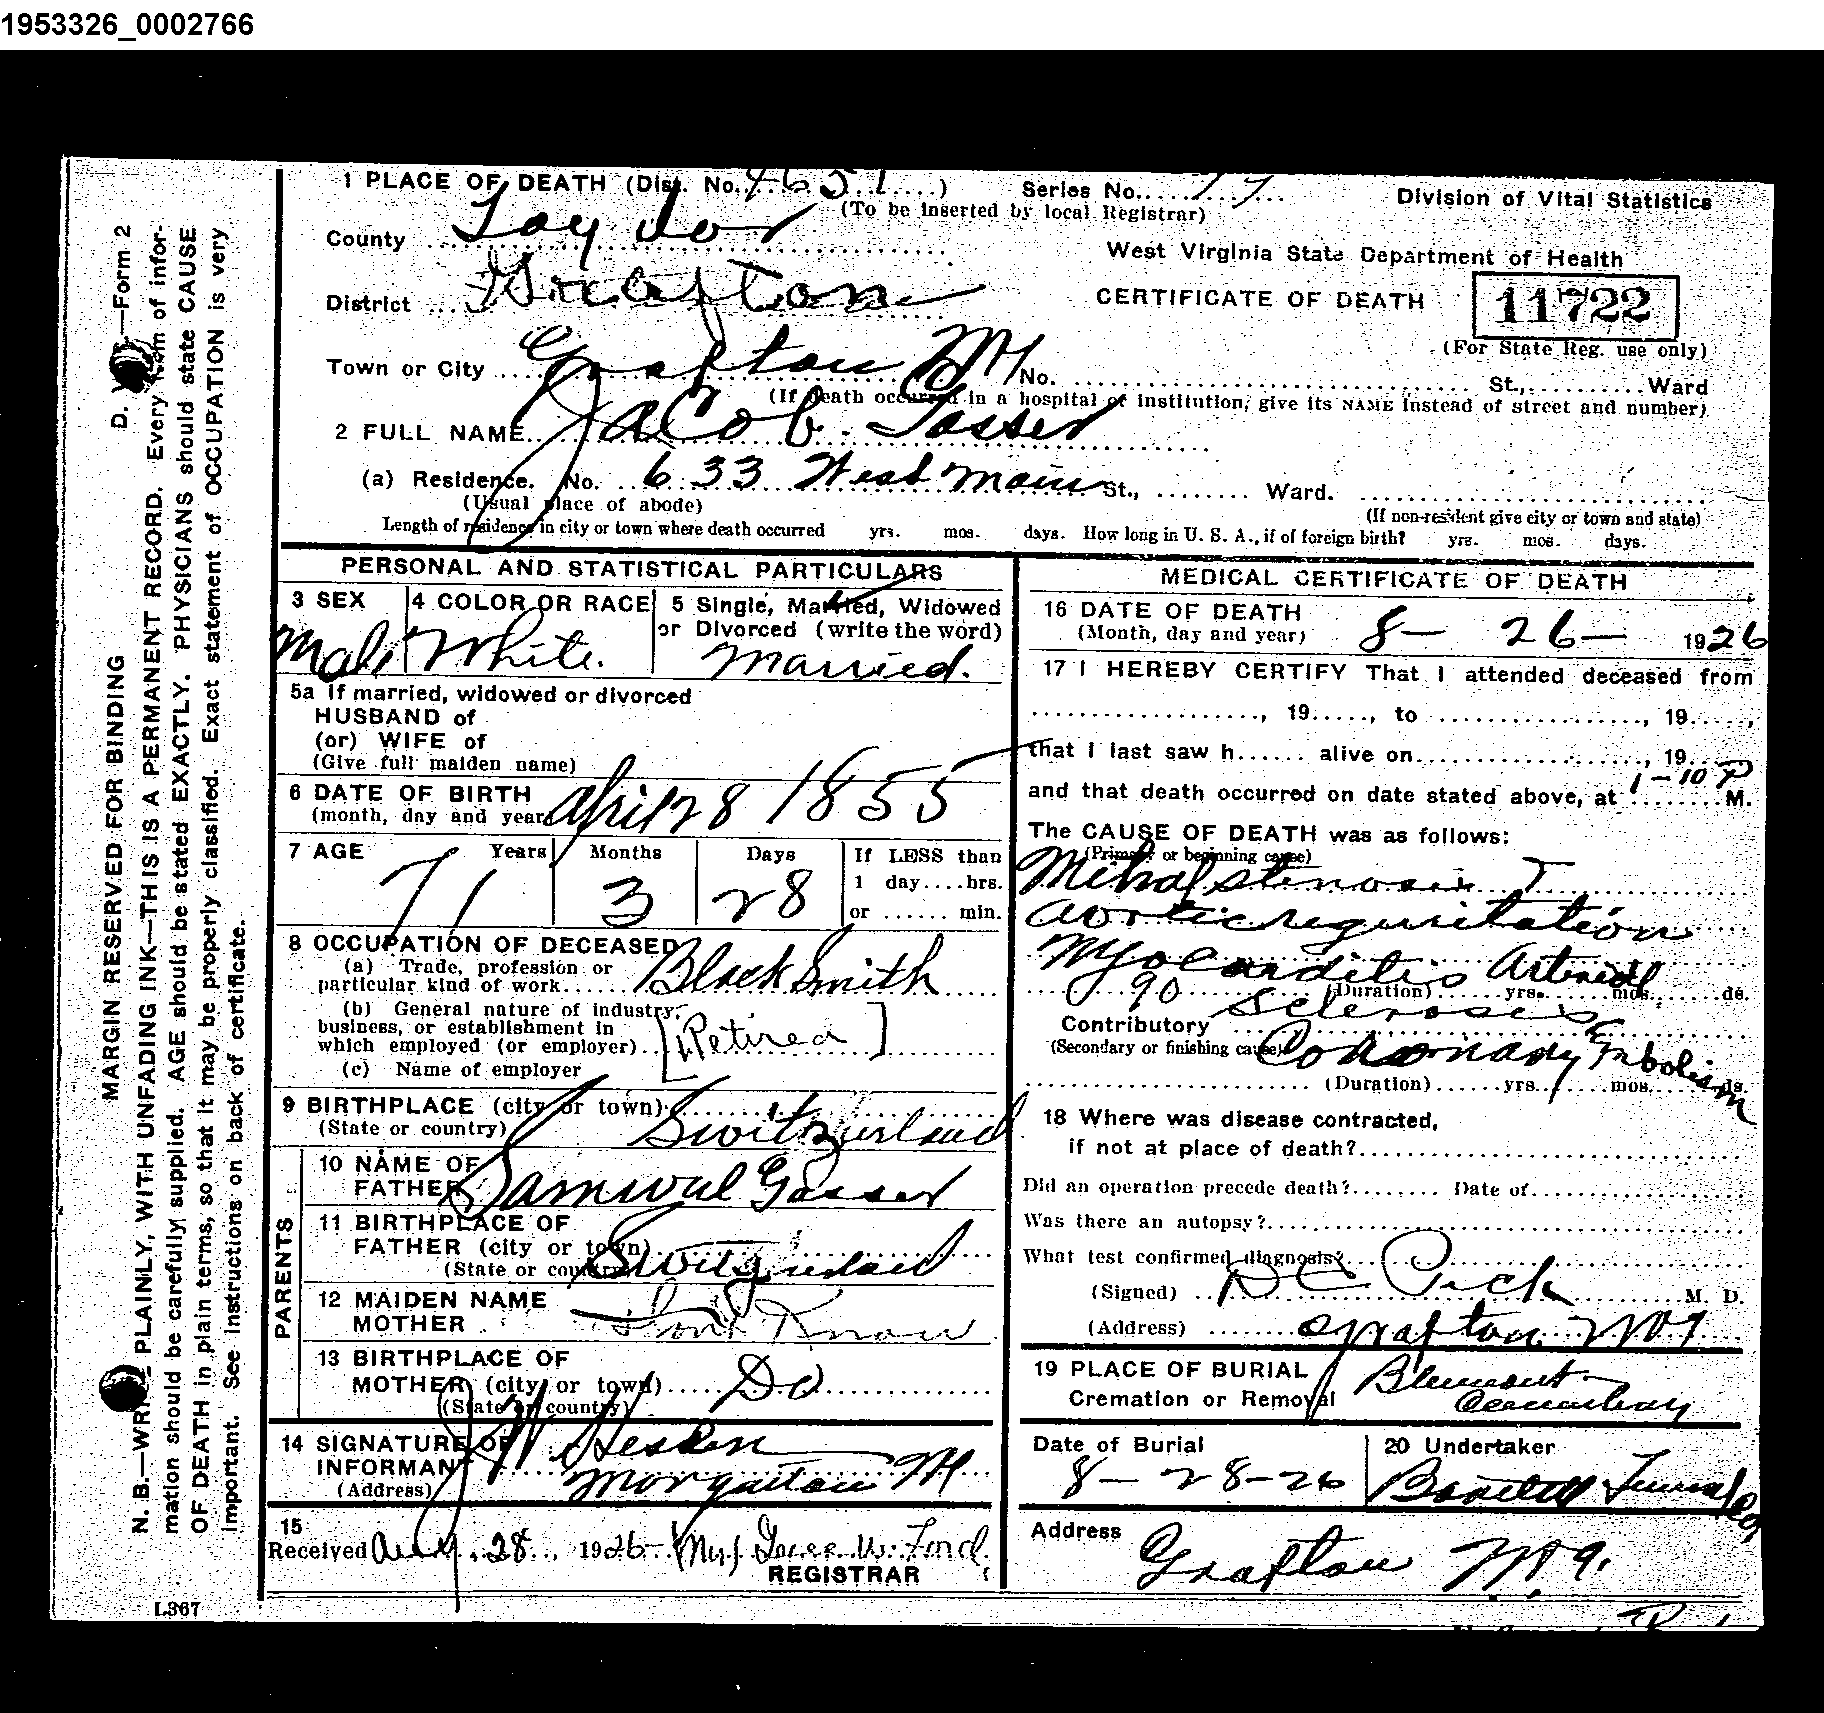 1953326_0002766
1 PLACE OF DEATH (Dist. No. 4651) Series No. 77 Division of Vital Statistics
(To be inserted by local Registrar)
County Taylor
West Virginia State Department of Health
District Grafton
CERTIFICATE OF DEATH 11722
(For State Reg. use only)
Town or City Grafton No. St., Ward
(If death occurred in a hospital or institution, give its NAME instead of street and number)
2 FULL NAME Jacob Gasser
(a) Residence. No. 633 West Main St., Ward.
(Usual place of abode) (If non-resident give city or town and state)
Length of residence in city or town where death occurred yrs. mos. days. How long in U. S. A., if of foreign birth? yrs. mos. days.
PERSONAL AND STATISTICAL PARTICULARS
3 SEX 4 COLOR OR RACE 5 Single, Married, Widowed
or Divorced (write the word)
Male White. Married.
5a If married, widowed or divorced
HUSBAND of
(or) WIFE of
(Give full maiden name)
6 DATE OF BIRTH
(month, day and year) April 28 1855
7 AGE Years Months Days If LESS than
1 day....hrs.
or ...... min.
71 3 28
8 OCCUPATION OF DECEASED
(a) Trade, profession or
particular kind of work Black Smith
(b) General nature of industry,
business, or establishment in
which employed (or employer) [Retired]
(c) Name of employer
9 BIRTHPLACE (city or town)
(State or country) Switzerland
PARENTS
10 NAME OF
FATHER Samwul Gasser
11 BIRTHPLACE OF
FATHER (city or town)
(State or country) Switzerland
12 MAIDEN NAME
MOTHER Dont Know
13 BIRTHPLACE OF
MOTHER (city or town) Do
(State or country)
14 SIGNATURE OF
INFORMANT
(Address)
15
Received Aug. 28, 1926 (Mrs) W. Ford
REGISTRAR
L367
MEDICAL CERTIFICATE OF DEATH
16 DATE OF DEATH
(Month, day and year) 8- 26- 1926
17 I HEREBY CERTIFY That I attended deceased from
, 19....., to , 19.....,
that I last saw h...... alive on , 19
and that death occurred on date stated above, at 1-10 P M.
The CAUSE OF DEATH was as follows:
(Primary or beginning cause)
Mitral stenosis
aortic reguritation
Myocarditis Arterial
90 (Duration) yrs. mos. ds.
Sclerosis
Contributory
(Secondary or finishing cause) Coronary Embolism
(Duration) yrs. mos. ds.
18 Where was disease contracted,
if not at place of death?
Did an operation precede death? Date of
Was there an autopsy?
What test confirmed diagnosis?
(Signed) Peck M. D.
(Address) Grafton
19 PLACE OF BURIAL
Cremation or Removal
Bluemont
Cemetery
Date of Burial 20 Undertaker
8-28-26
Address
Grafton
D. —Form 2
MARGIN RESERVED FOR BINDING
N. B.—WRITE PLAINLY, WITH UNFADING INK—THIS IS A PERMANENT RECORD. Every item of infor-
mation should be carefully supplied. AGE should be stated EXACTLY. PHYSICIANS should state CAUSE
OF DEATH in plain terms, so that it may be properly classified. Exact statement of OCCUPATION is very
important. See instructions on back of certificate.